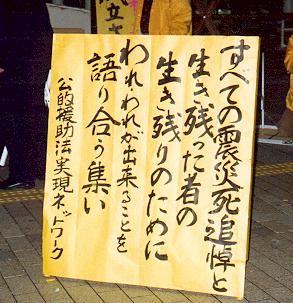 すべての震災死追悼と
生き残った者の
生き残りのために
われ・われが出来ることを
語り合う集い
公的援助法実現ネットワーク